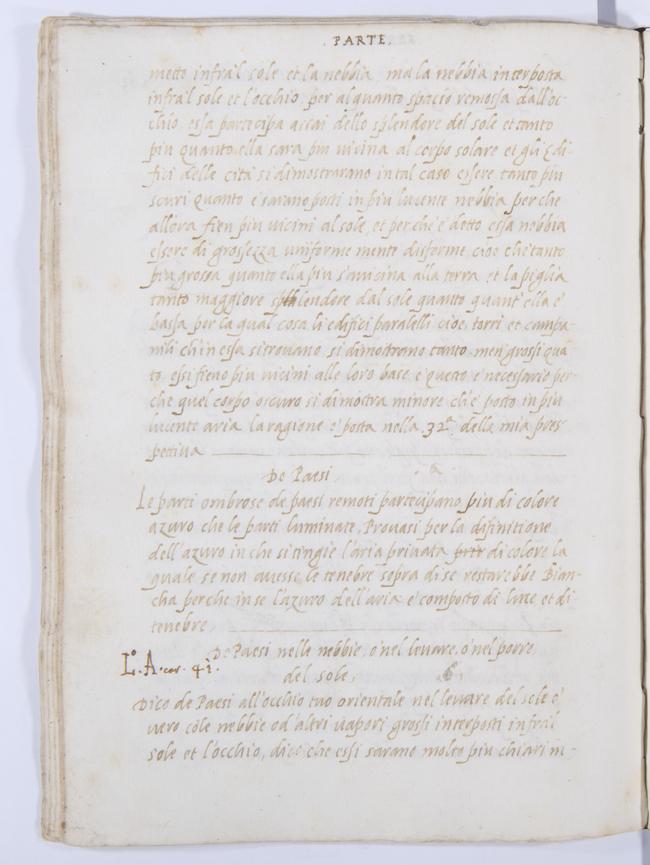 PARTE.
metto infra'l sole et la nebbia, ma la nebbia interposta
infra'l sole et l'occhio, per alquanto spacio remossa dall'oc-
chio, essa partecipa assai dello splendore del sole et tanto
piu quanto ella sara piu vicina al corpo solare et gli Edi-
fici delle cità si dimostrarano in tal caso essere tanto piu
scuri quanto e' sarano posti in piu lucente nebbia perche
allora fien piu vicini al sole, et perche è detto essa nebbia
essere di grossezza uniforme mente disforme, cioe che tanto
piu grossa quanto ella piu s'avicina alla terra et la piglia
tanto maggiore splendore dal sole quanto quant'ella è
bassa per la qual cosa li edifici paralelli cioe, torri et campa-
nili ch'in essa si trovano, si dimostrano tanto men grossi qua
to essi fieno piu vicini alle loro base e questo è necessario per-
che quel corpo oscuro si dimostra minore ch'è posto in piu
lucente aria la ragione è posta nella 32.ª della mia pres
pettiva
De Paesi
Le parti ombrose de paesi remoti partecipano piu di colore
azuro che le parti luminate, Provasi per la difinitione
dell'azuro in che si tingie l'aria privata di colore la
quale se non avesse le tenebre sopra di se restarebbe Bian-
cha perche in se l'azuro dell'aria è composto di luce et di
tenebre.
De Paesi nelle nebbie, o' nel levare, o' nel porre
L.º A. car. 41.
del sole.
Dico de Paesi all'occhio tuo orientale nel levare del sole o'
vero cõle nebbie od' altri vapori grossi interposti infra'l
sole et l'occhio, dico che essi sarano molto piu chiari in-